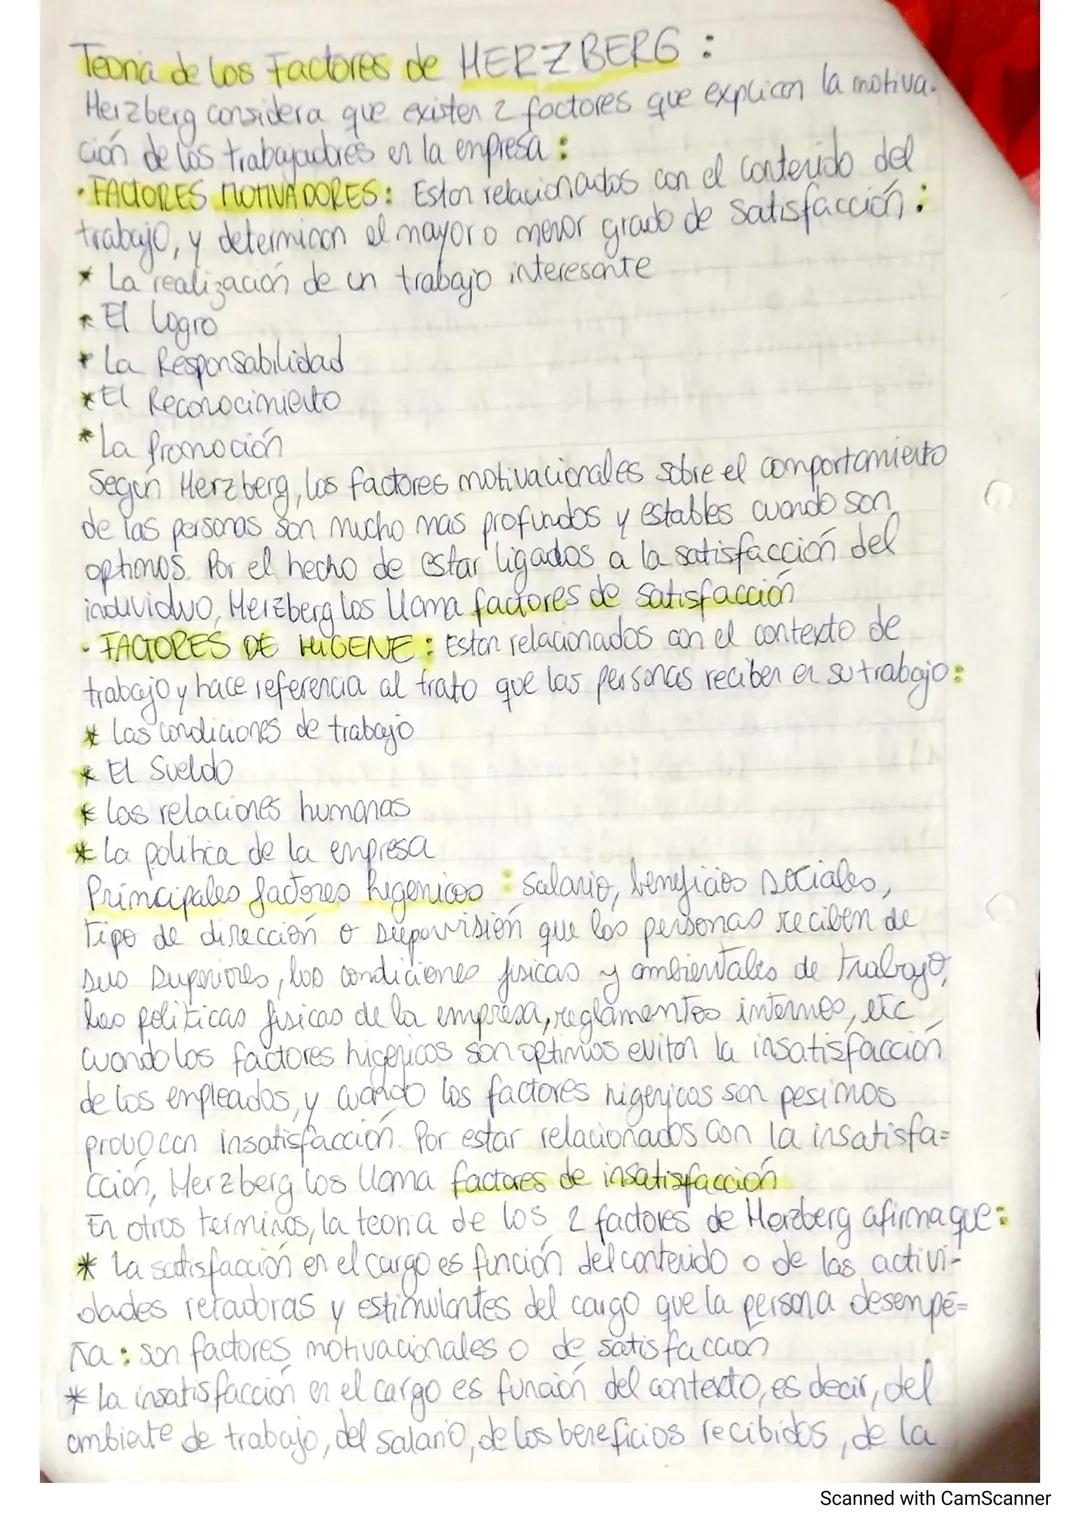 Teoria de los Factores de HERZBERG :
Herzberg considera que existen 2 factores que explican la motiva-
ción de los trabajadores en la empresa :
· FACTORES MOTIVADORES : Estan relacionados con el contenido del
trabajo, y determinan el mayor o menor grado de satisfacción :
* La realización de un trabajo interesante
* El logro
* La Responsabilidad
* El Reconocimiento
* La promoción
Según Herzberg, los factores motivacionales sobre el comportamiento
de las personas son mucho mas profundos y estables cuando son
optimos. Por el hecho de estar ligados a la satisfacción del
individuo, Herzberg los llama factores de satisfacción
· FACTORES DE HIGENE : Estan relacionados con el contexto de
trabajo y hace referencia al trato que las personas reciben en su trabajo :
* Las condiciones de trabajo
* El Sueldo
* Las relaciones humanas
* La politica de la empresa
Principales factores higenicos : Salario, beneficios sociales,
tipo de dirección o supervisión que las personas reciben de
sus superiores, las condiciones fisicas y ambientales de trabajo,
las politicas fisicas de la empresa, reglamentos internos, etc
cuando los factores higenicos son optimos evitan la insatisfacción
de los empleados, y cuando los factores higenicos son pesimos
provocan insatisfacción. Por estar relacionados con la insatisfa-
cción, Herzberg los llama factores de insatisfacción
En otros terminos, la teoria de los 2 factores de Herzberg afirma que :
* La satisfacción en el cargo es función del contenido o de las activi-
dades retadoras y estimulantes del cargo que la persona desempe-
ña : son factores motivacionales o de satisfacción
* La insatisfacción en el cargo es función del contexto, es decir, del
ambiente de trabajo, del salario, de los beneficios recibidos, de la
Scanned with CamScanner